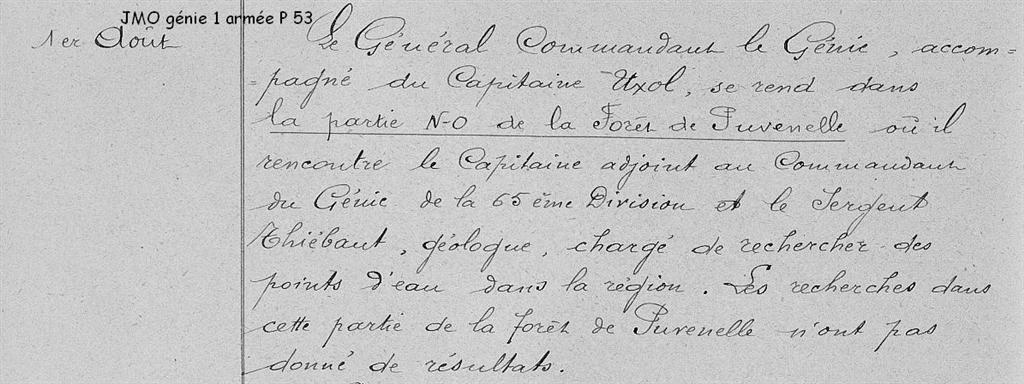 JMO génie 1 armée P 53
1er Août
Le Général Commandant le Génie, accom-
-pagné du Capitaine Uxol, se rend dans
la partie N-O de la Forêt de Puvenelle où il
rencontre le Capitaine adjoint au Commandant
du Génie de la 65ème Division et le Sergent
Thiébaut, géologue, chargé de rechercher des
points d'eau dans la région. Les recherches dans
cette partie de la forêt de Puvenelle n'ont pas
donné de résultats.